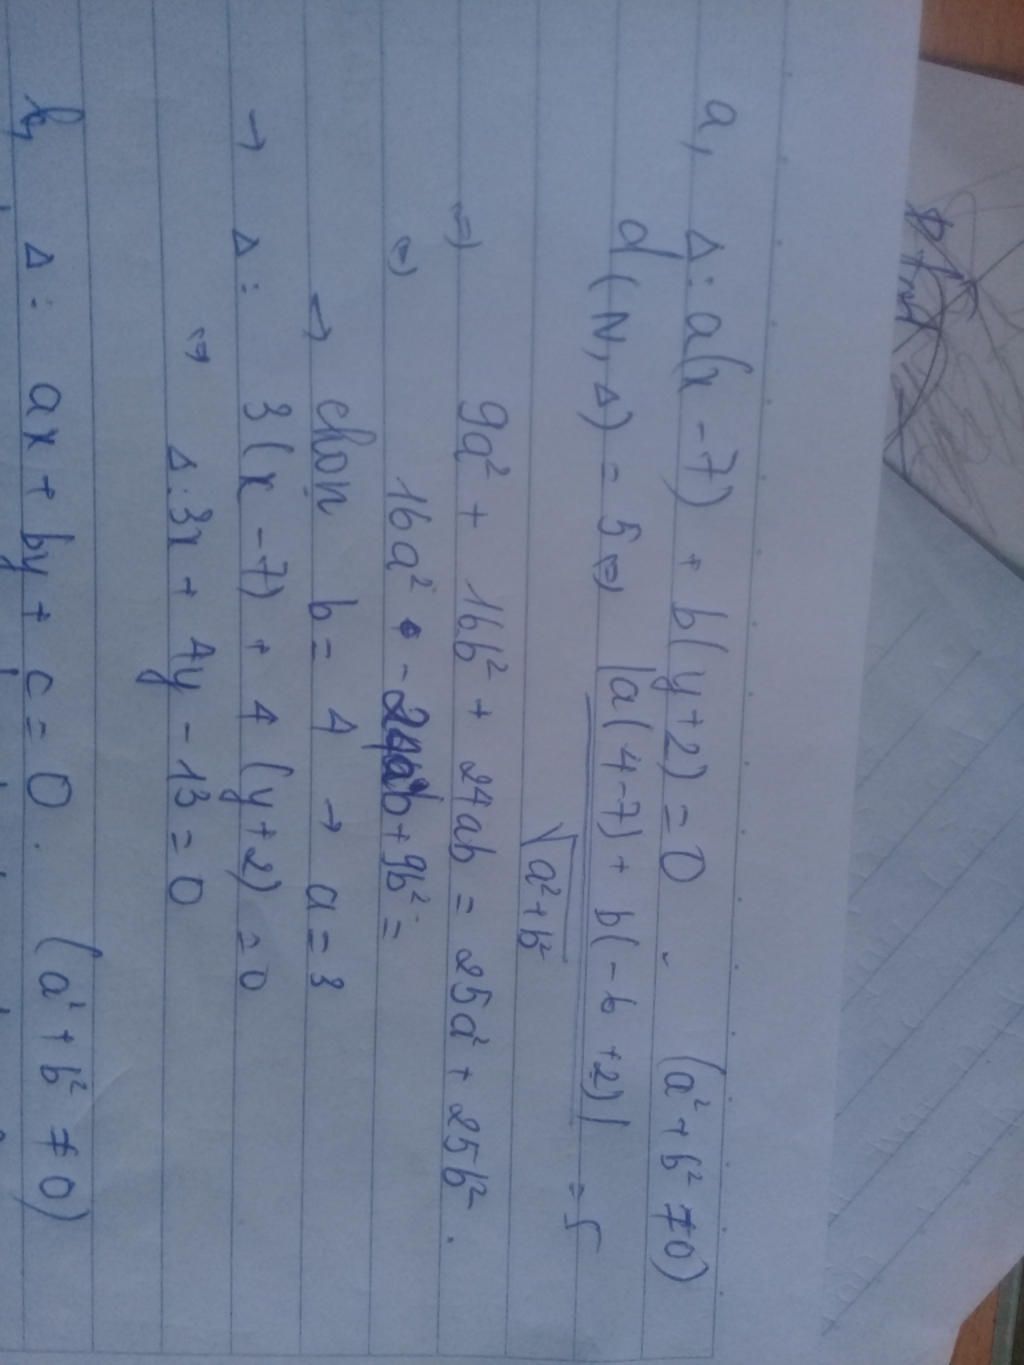 a, Δ: a(x - 7) + b(y + 2) = 0. (a² + b² ≠ 0)
d(N, Δ) = 5 ⇔ |a(4 - 7) + b(-6 + 2)| = 5
√a² + b²
⇔ 9a² + 16b² + 24ab = 25a² + 25b².
⇔ 16a² - 24ab + 9b² =
→ chọn b = 4 → a = 3
→ Δ: 3(x - 7) + 4(y + 2) = 0
⇔ Δ: 3x + 4y - 13 = 0
b, Δ: ax + by + c = 0. (a² + b² ≠ 0)